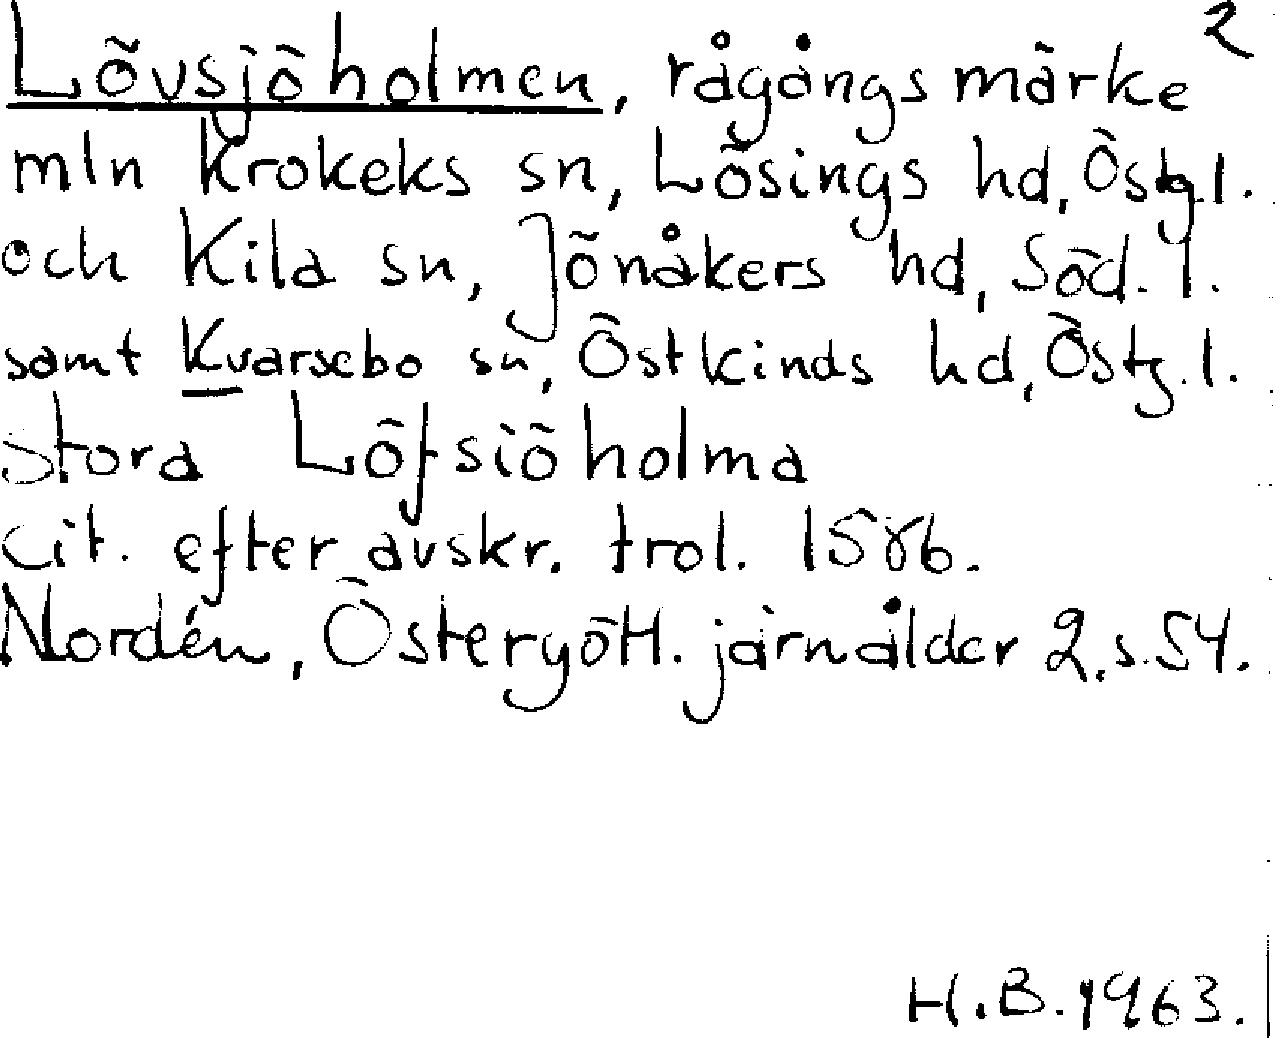 2
Lövsjöholmen, rågångsmärke
mln Krokeks sn, Lösings hd, Östg.l.
och Kila sn, Jönåkers hd, Söd.l.
samt Kvarsebo sn, Östkinds hd, Östg.l.
Stora Löfsiöholma
cit. efter avskr. trol. 1586.
Nordén, Östergötl. järnålder 2, s. 54.
H.B. 1963.